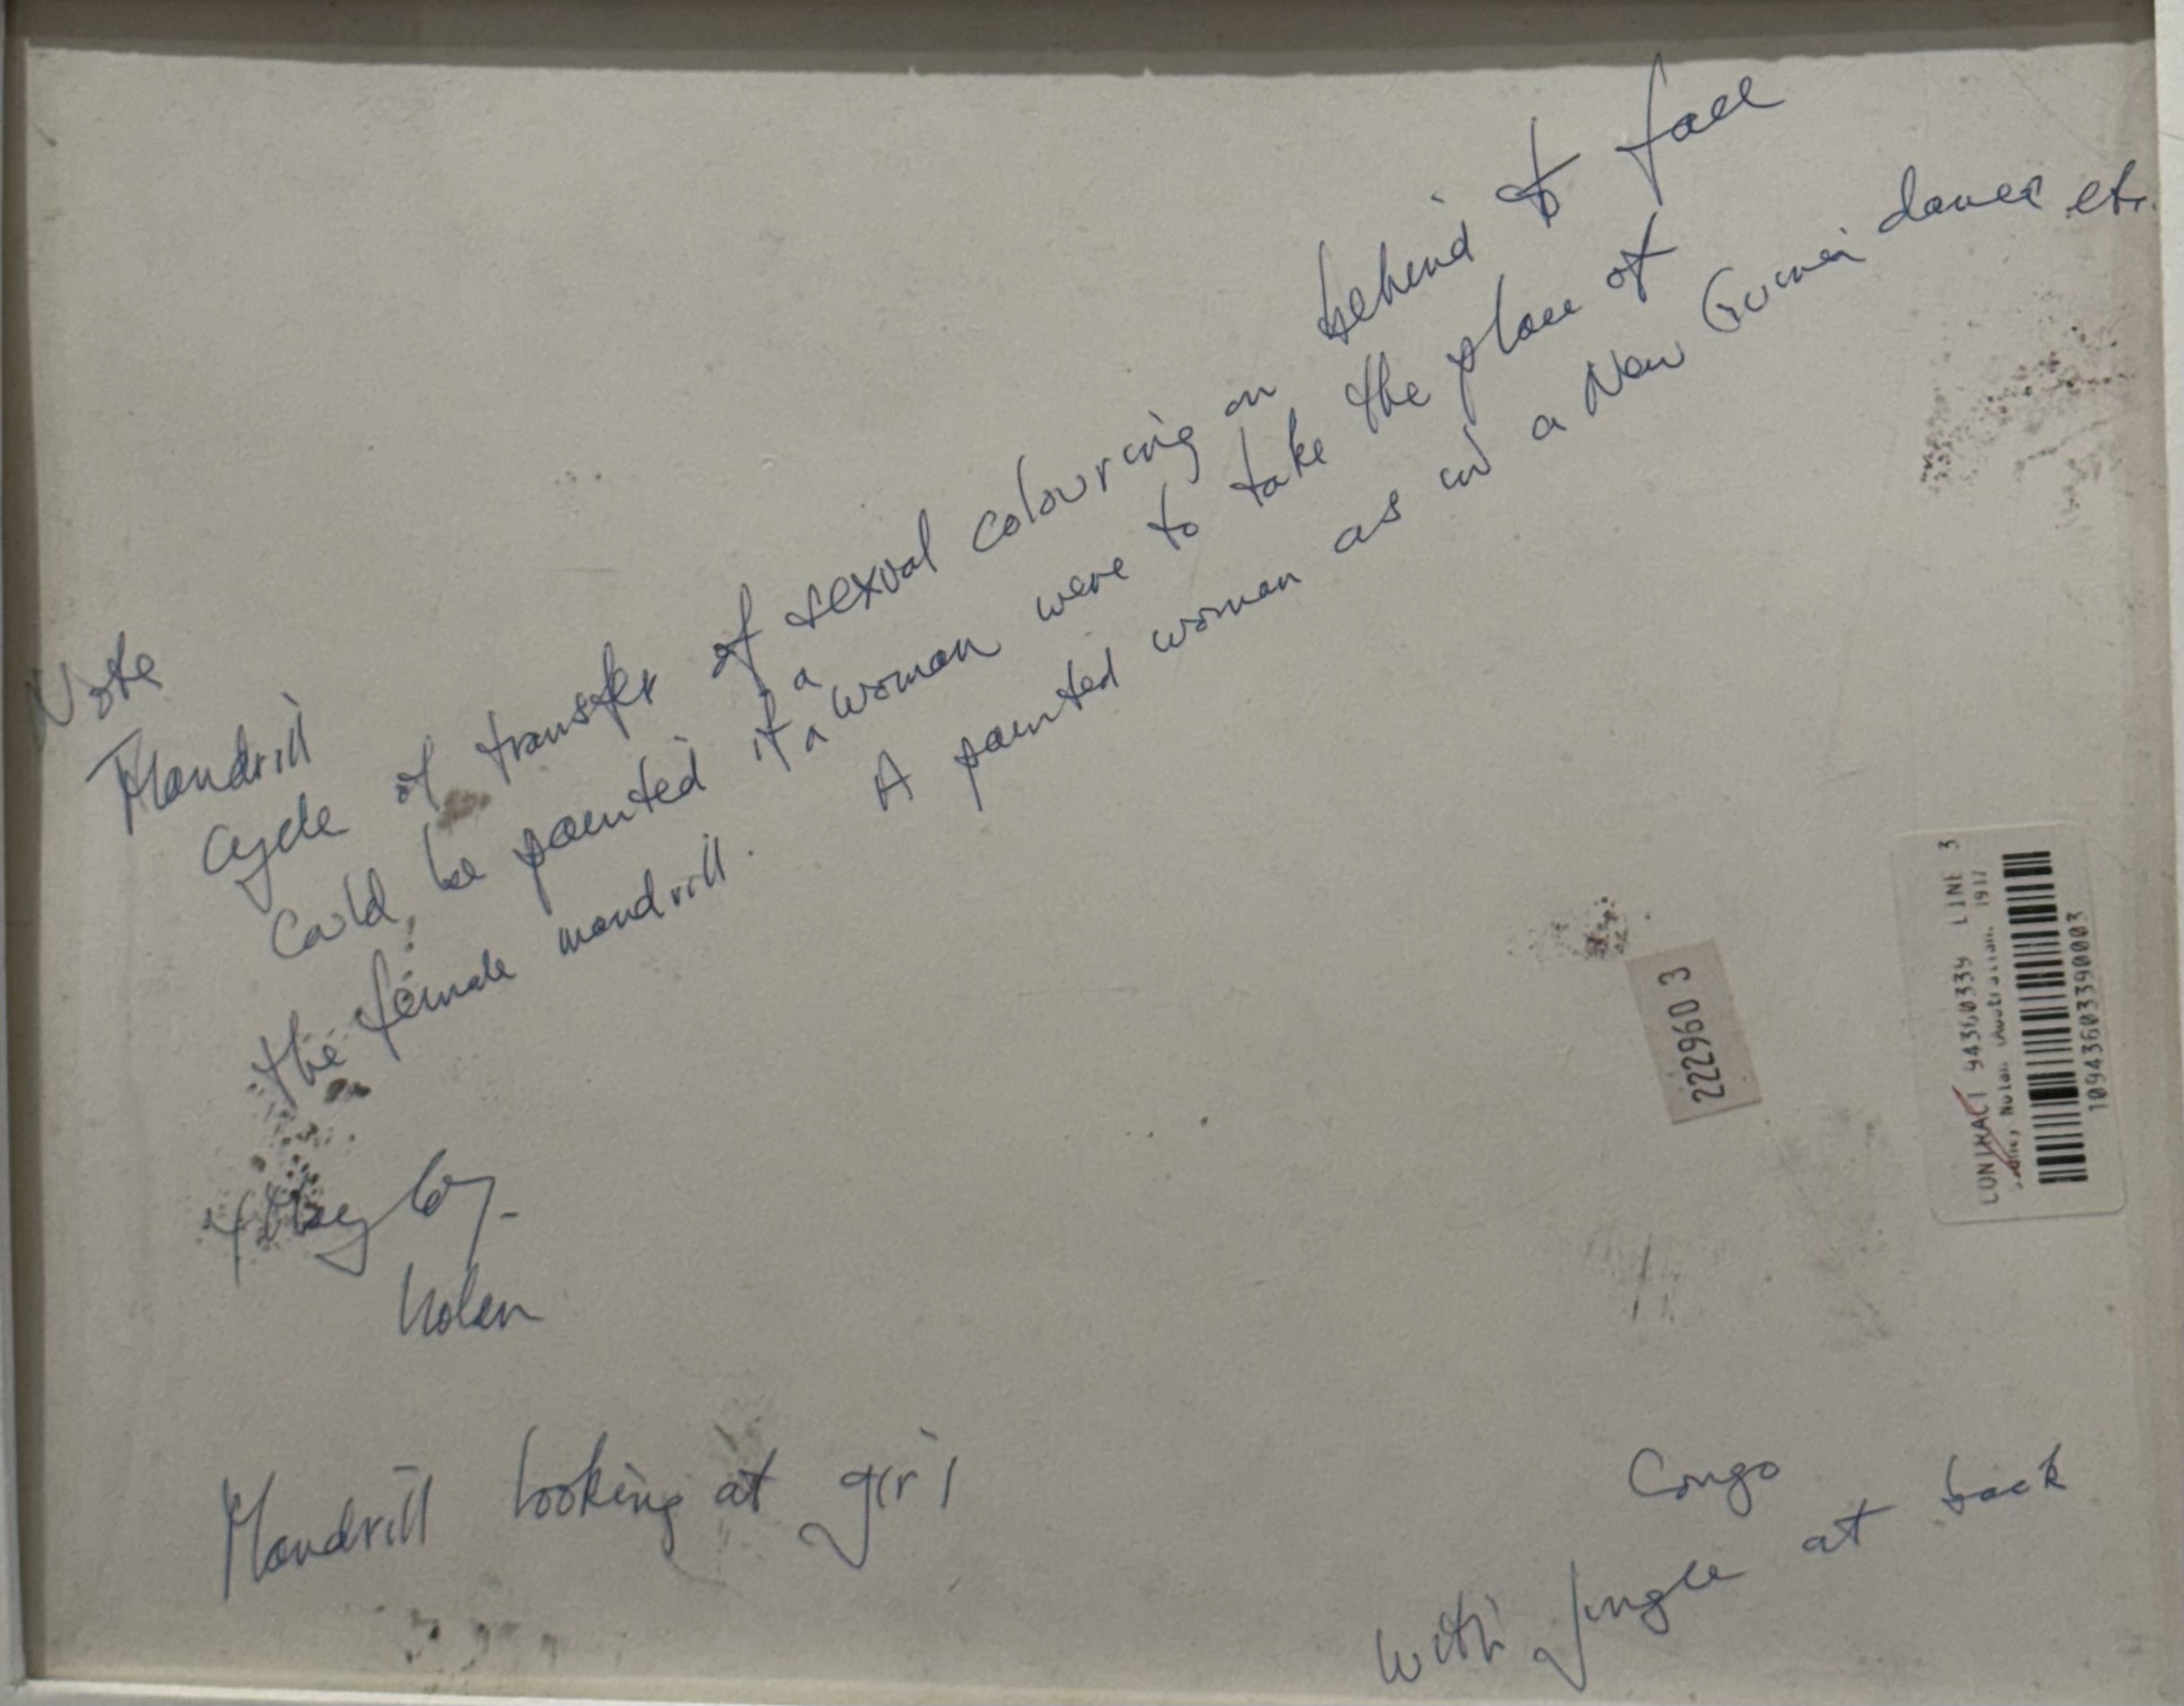 Note
Mandrill
Cycle of transfer of sexual colouring on behind to face
Could be painted if a a woman were to take the place of
the female mandrill. A painted woman as in a New Guinei dance etc.
by
Nolan
Mandrill looking at girl
Congo
With jungle at back
222960 3
CONTRACT 94360339 LINE 3
Nolan (Australian, 1917
10943603390003